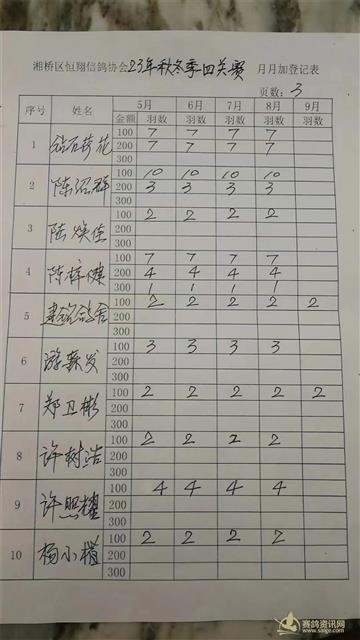 湘桥区恒翔信鸽协会23年秋冬季四关赛 月月加登记表
页数: 3
序号 姓名 5月 6月 7月 8月 9月
金额 羽数 羽数 羽数 羽数 羽数
1 钻石荷花 100 7 7 7 7
200 7 7 7 7
300
2 陈沼群 100 10 10 10 10
200 3 3 3 3
300
3 陆焕佳 100 2 2 2 2
200
300
4 陈梓健 100 7 7 7 7
200 4 4 4 4
300 1 1 1 1
5 建铭鸽舍 100 2 2 2 2 2
200
300
6 游 发 100 3 3 3 3
200
300
7 郑卫彬 100 2 2 2 2 2
200
300
8 许树浩 100 2 2 2 2
200
300
9 许照耀 100 4 4 4 4
200
300
10 杨小 100 2 2 2 2
200
300
赛鸽资讯网
www.saige.com